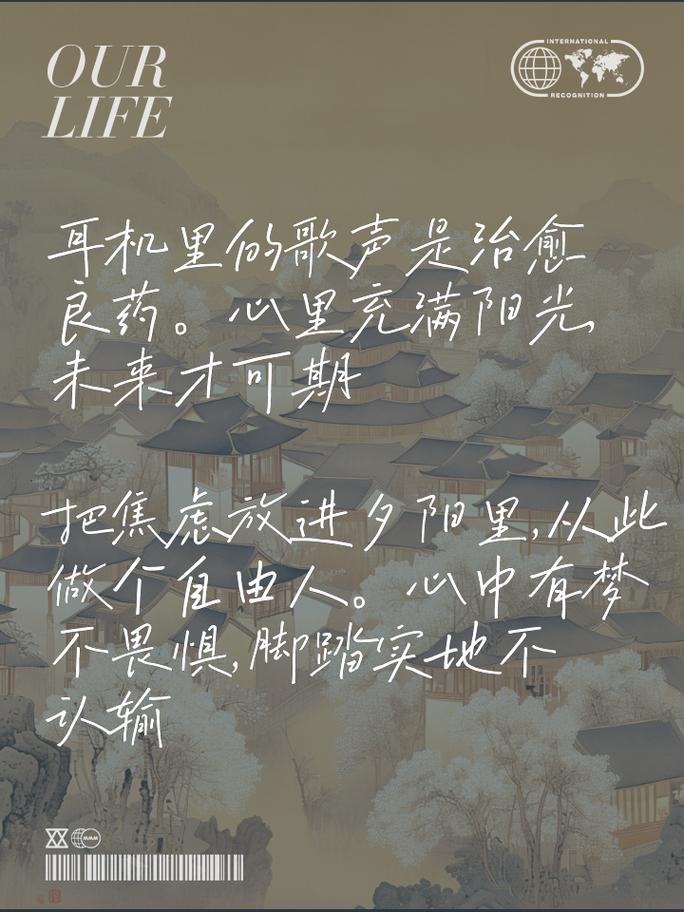 OUR
LIFE
INTERNATIONAL
RECOGNITION
耳机里的歌声是治愈
良药。心里充满阳光,
未来才可期
把焦虑放进夕阳里,从此
做个自由人。心中有梦
不畏惧,脚踏实地不
认输